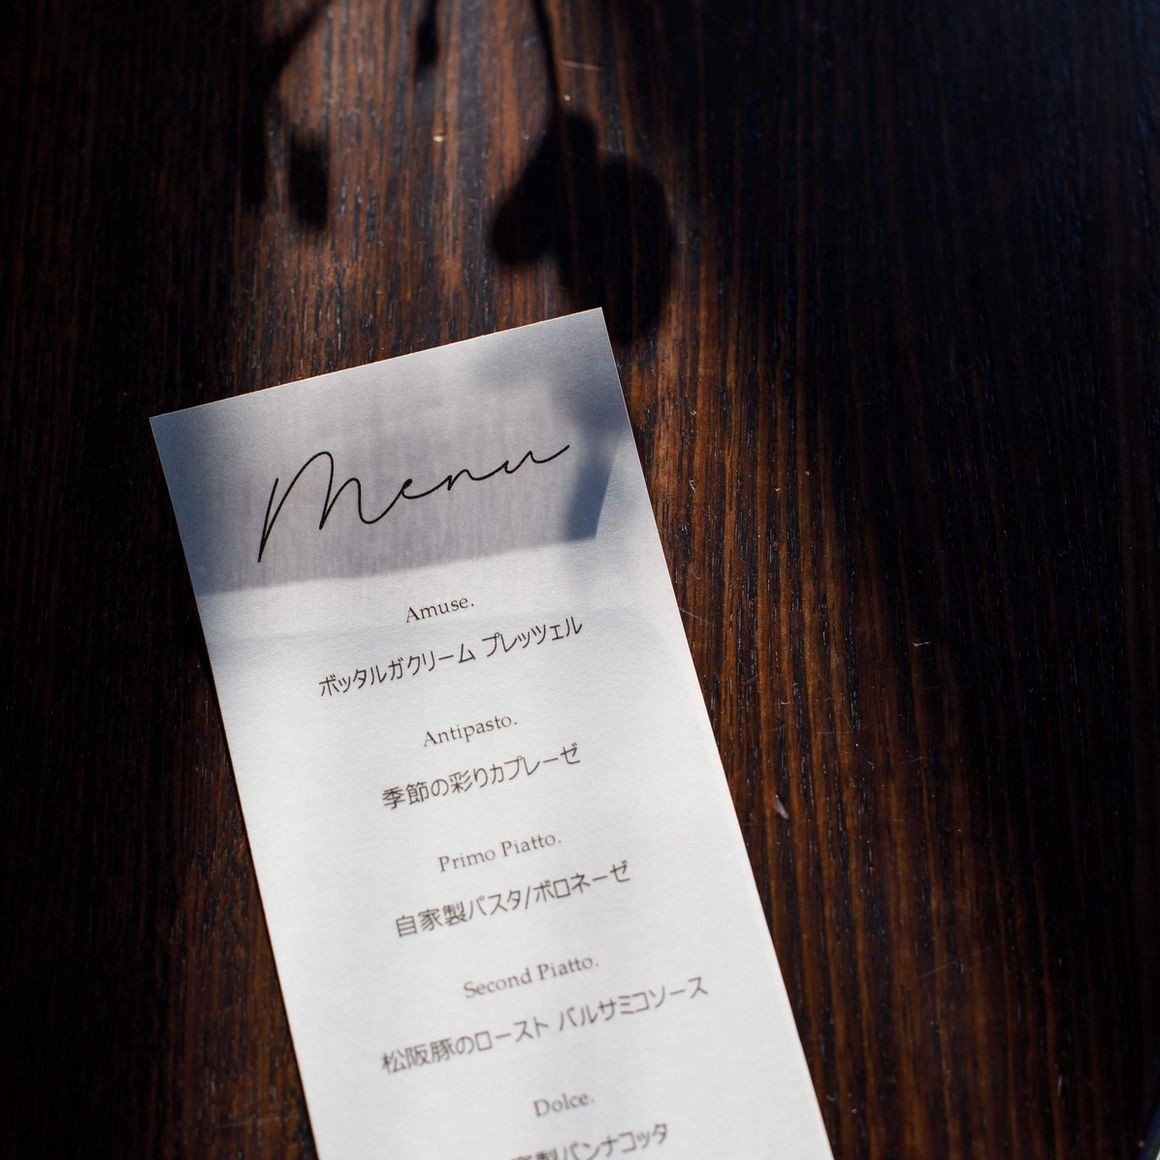 Menu
Amuse.
ボッタルガクリーム プレッツェル
Antipasto.
季節の彩りカプレーゼ
Primo Piatto.
自家製パスタ/ボロネーゼ
Second Piatto.
松阪豚のロースト バルサミコソース
Dolce.
家製パンナコッタ